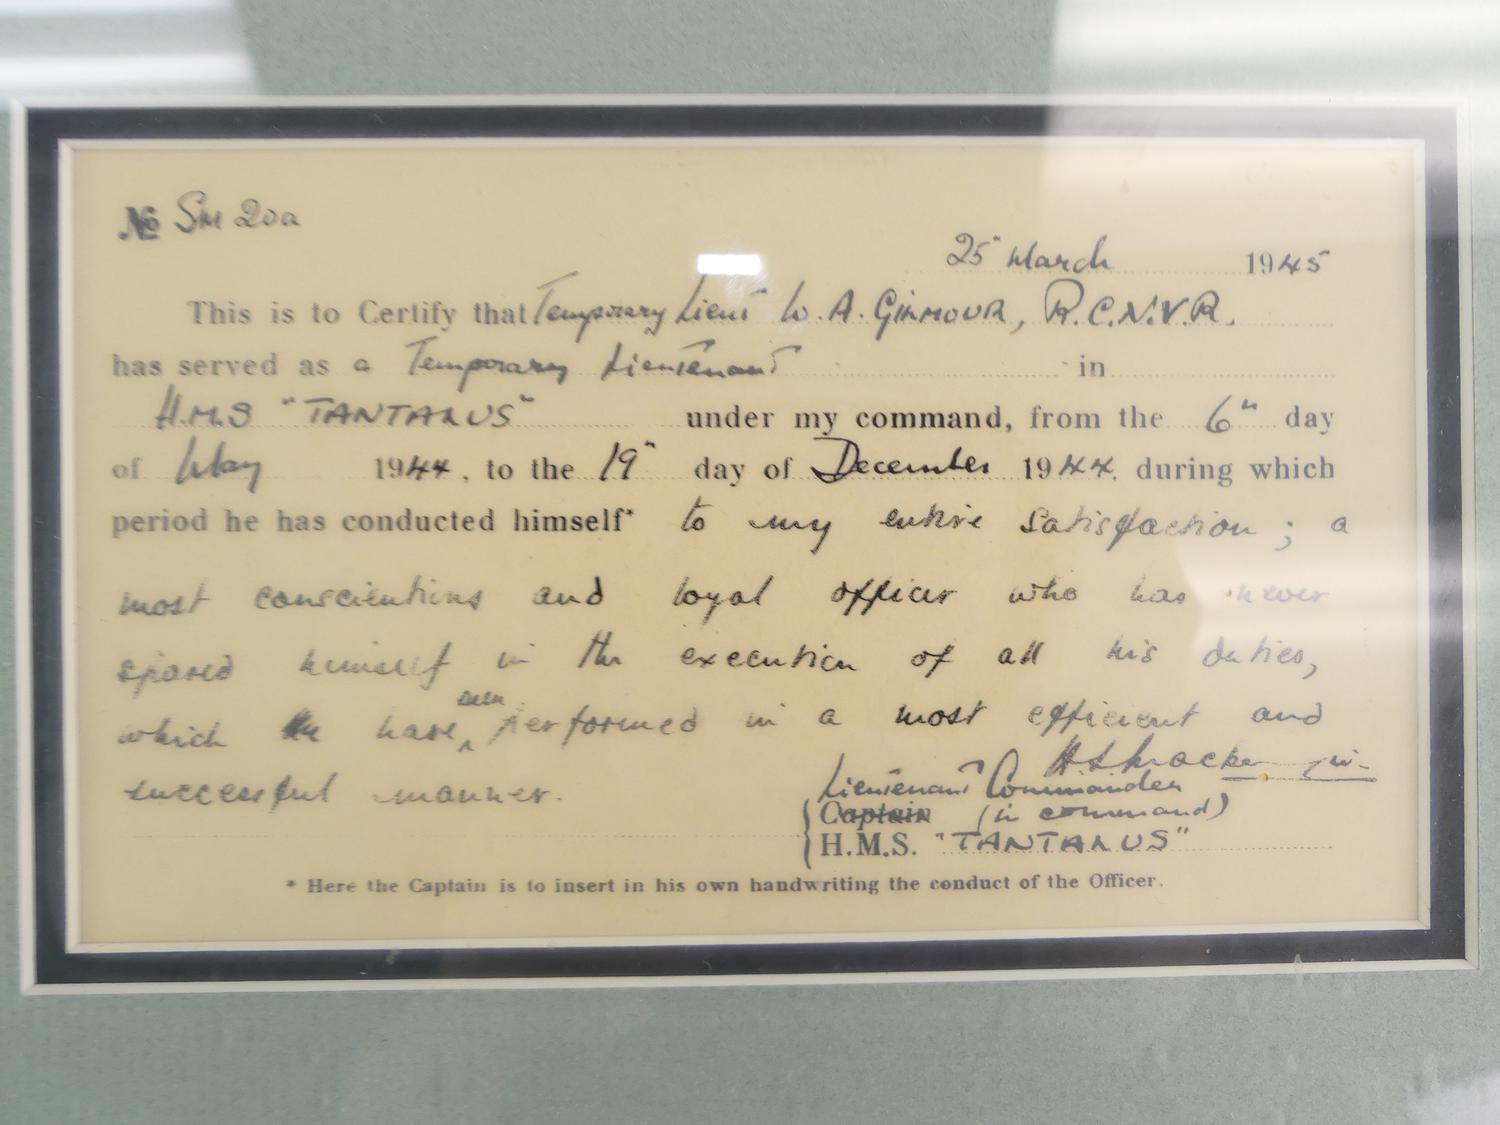 No Sm 20a
25th March 1945
This is to Certify that Temporary Lieut W. A. GILMOUR, R.C.N.V.R.
has served as a Temporary Lieutenant in
H.M.S "TANTALUS" under my command, from the 6th day
of May 1944, to the 19th day of December 1944, during which
period he has conducted himself* to my entire satisfaction; a
most conscientious and loyal officer who has never
spared himself in the execution of all his duties,
which have been performed in a most efficient and
successful manner.
Lieutenant Commander
Captain (in command)
H.M.S. "TANTALUS"
* Here the Captain is to insert in his own handwriting the conduct of the Officer.